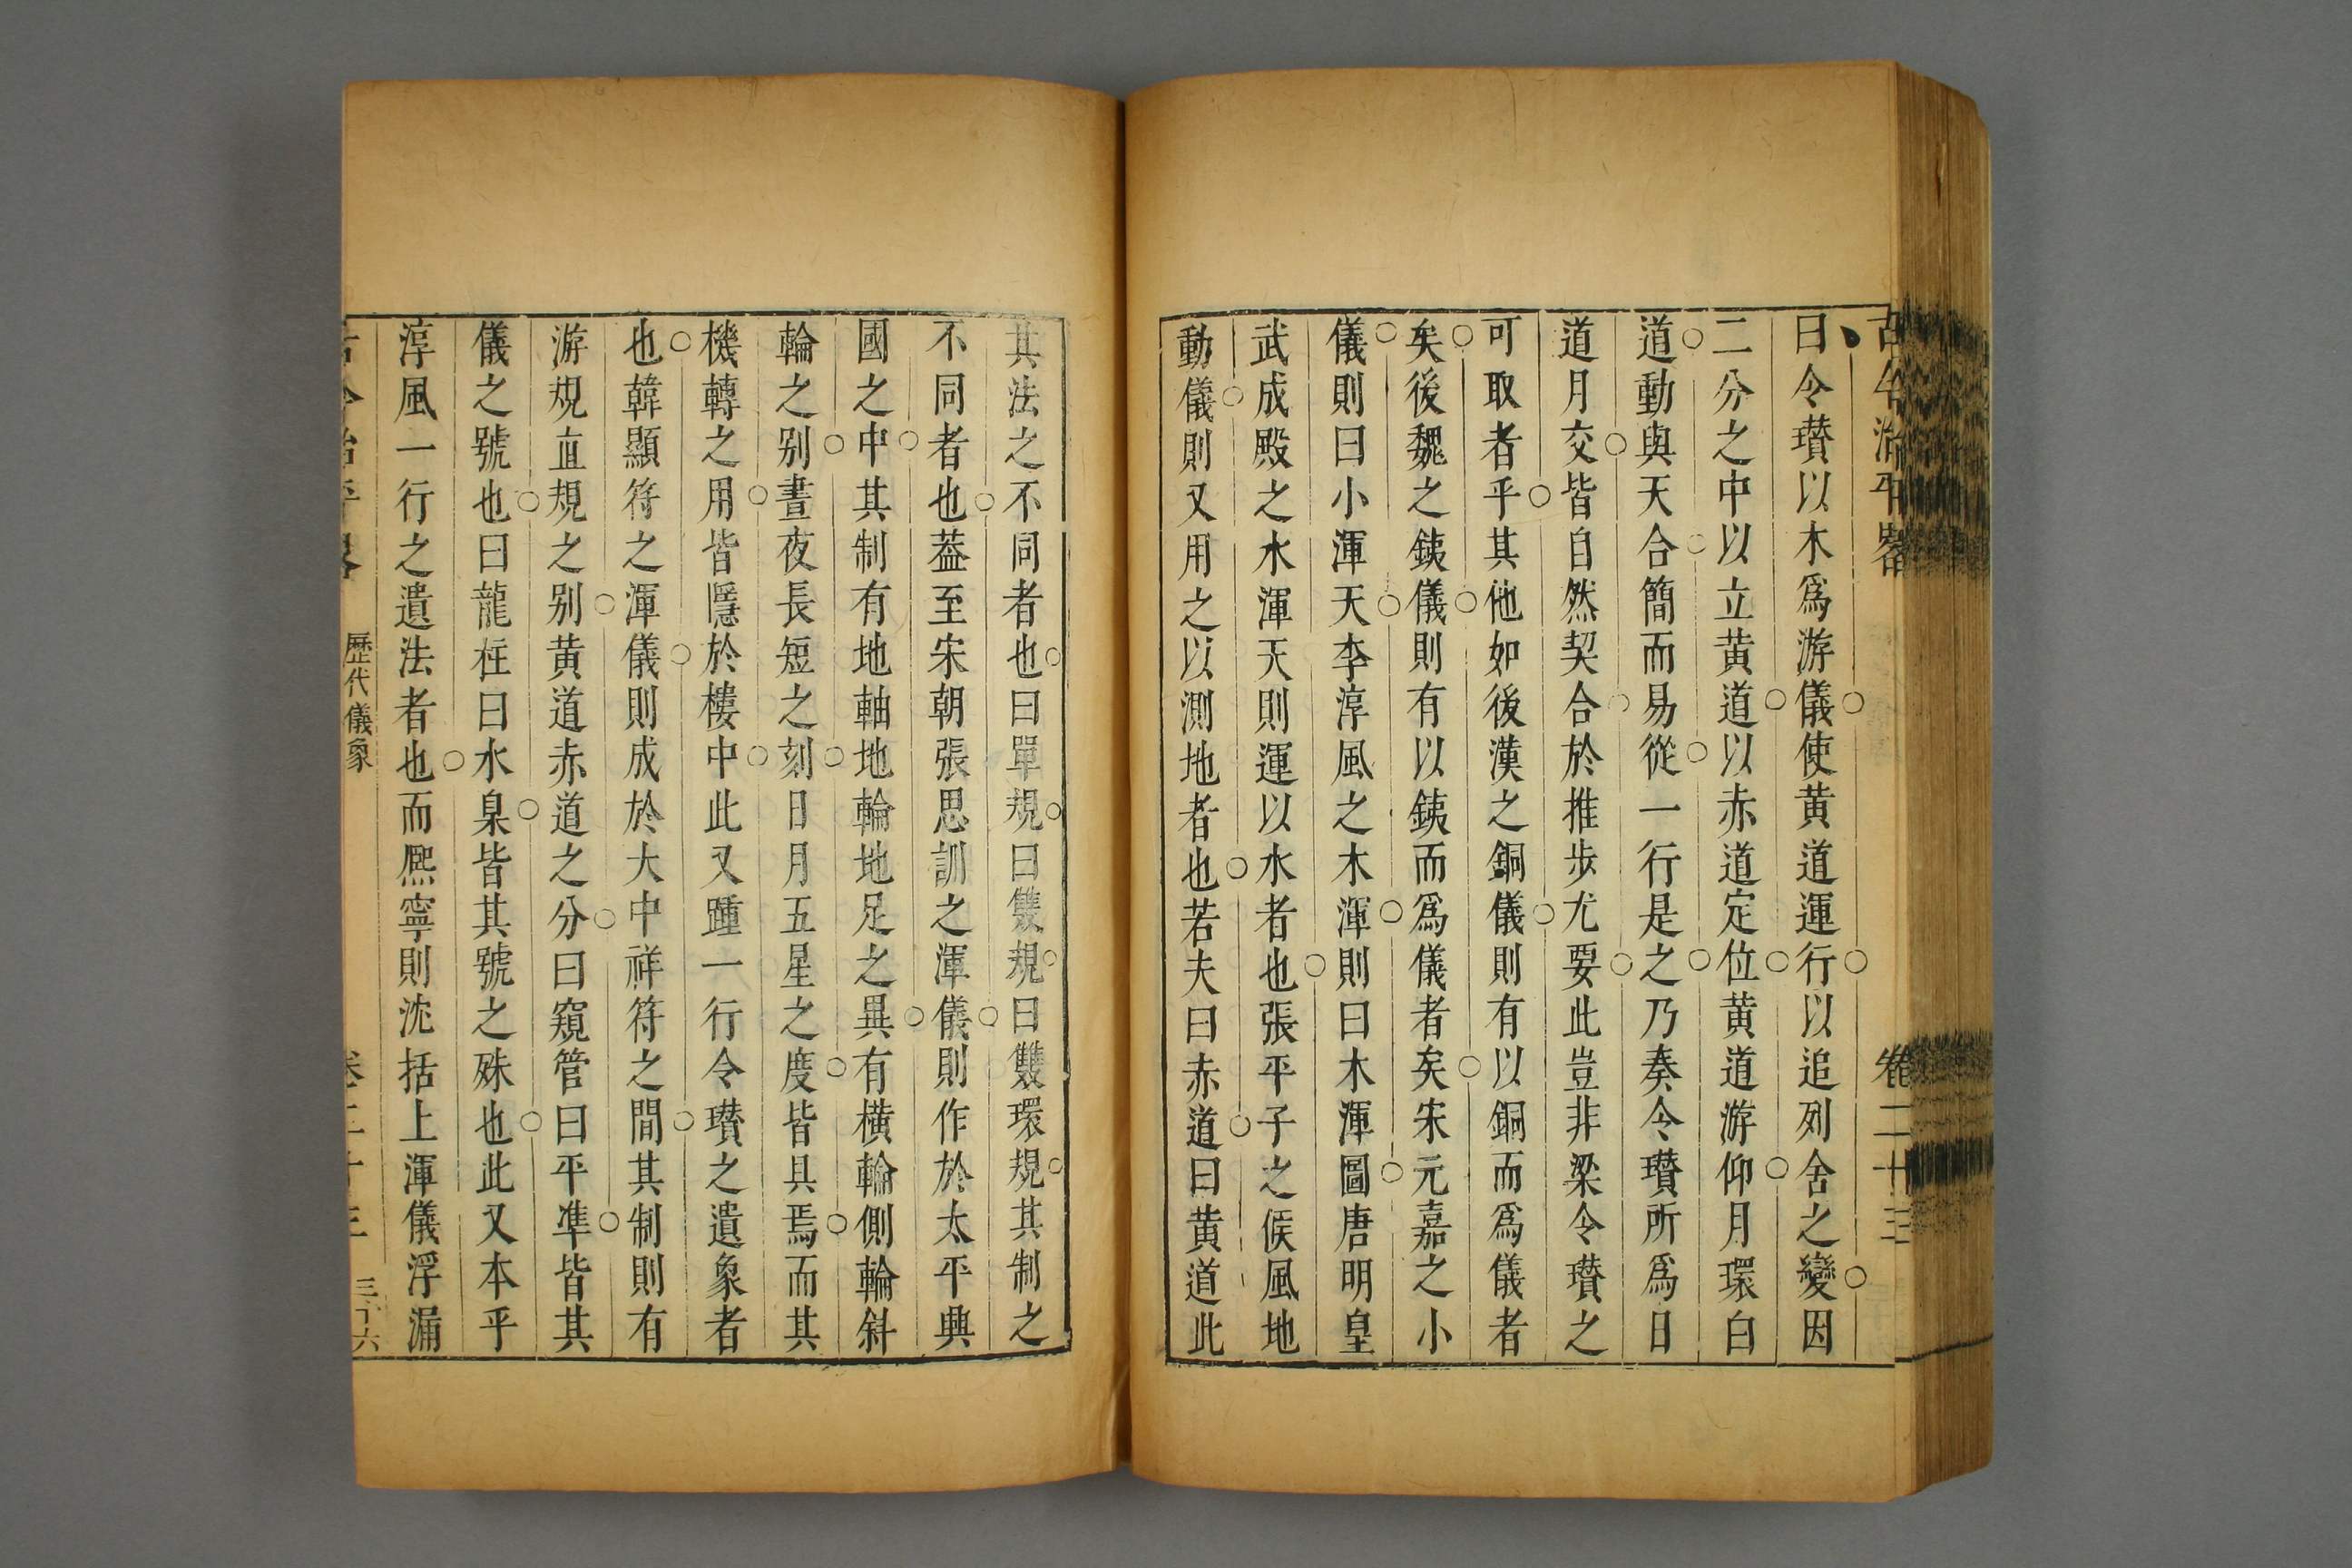 古今治平畧
卷二十三
曰令瓚以木爲游儀使黄道運行以追列舍之變因
二分之中以立黄道以赤道定位黄道游仰月環白
道動與天合簡而易從一行是之乃奏令瓚所爲日
道月交皆自然契合於推步尤要此豈非梁令瓚之
可取者乎其他如後漢之銅儀則有以銅而爲儀者
矣後魏之銕儀則有以銕而爲儀者矣宋元嘉之小
儀則曰小渾天李淳風之木渾則曰木渾圖唐明皇
武成殿之水渾天則運以水者也張平子之候風地
動儀則又用之以測地者也若夫曰赤道曰黄道此
其法之不同者也曰單規曰雙規曰雙環規其制之
不同者也葢至宋朝張思訓之渾儀則作於太平興
國之中其制有地軸地輪地足之異有横輪側輪斜
輪之别晝夜長短之刻日月五星之度皆具焉而其
機轉之用皆隱於樓中此又踵一行令瓚之遺象者
也韓顯符之渾儀則成於大中祥符之間其制則有
游規直規之别黄道赤道之分曰窺管曰平準皆其
儀之號也曰龍柱曰水臬皆其號之殊也此又本乎
淳風一行之遺法者也而熈寧則沈括上渾儀浮漏
古今治平畧
歷代儀象
卷二十三
三十六